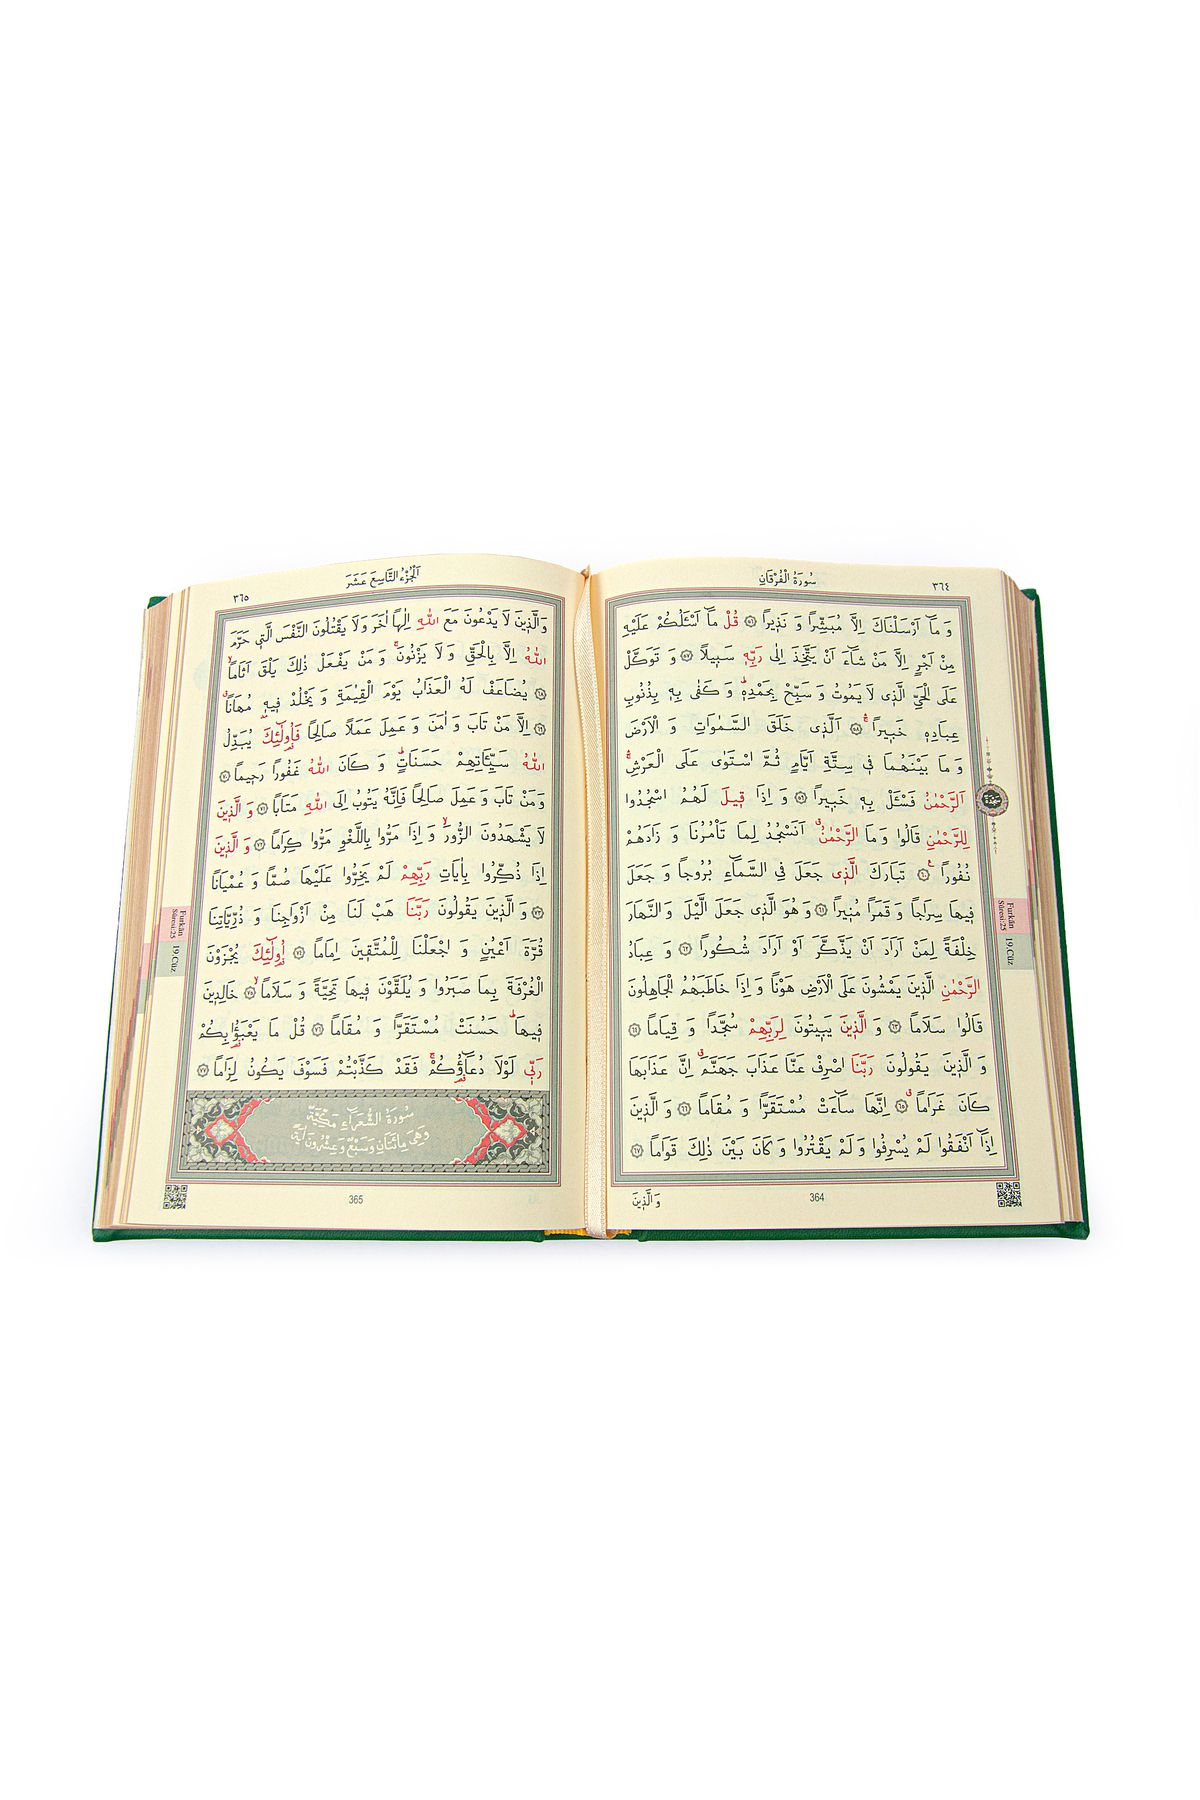 سُورَةُ الْفُرْقَانِ
٣٦٤
وَ مَٓا اَرْسَلْنَاكَ اِلَّا مُبَشِّراً وَ نَذٖيراً ﴿٥٦﴾ قُلْ مَٓا اَسْـَٔلُكُمْ عَلَيْهِ
مِنْ اَجْرٍ اِلَّا مَنْ شَٓاءَ اَنْ يَتَّخِذَ اِلٰى رَبِّهٖ سَبٖيلاً ﴿٥٧﴾ وَ تَوَكَّلْ
عَلَى الْحَيِّ الَّذٖى لَا يَمُوتُ وَ سَبِّحْ بِحَمْدِهٖؕ وَ كَفٰى بِهٖ بِذُنُوبِ
عِبَادِهٖ خَبٖيراًۚ ﴿٥٨﴾ اَلَّذٖى خَلَقَ السَّمٰوَاتِ وَ الْاَرْضَ
وَ مَا بَيْنَهُمَا فٖى سِتَّةِ اَيَّامٍ ثُمَّ اسْتَوٰى عَلَى الْعَرْشِۚ
اَلرَّحْمٰنُ فَسْـَٔلْ بِهٖ خَبٖيراً ﴿٥٩﴾ وَ اِذَا قٖيلَ لَهُمُ اسْجُدُوا
لِلرَّحْمٰنِ قَالُوا وَ مَا الرَّحْمٰنُۗ اَنَسْجُدُ لِمَا تَأْمُرُنَا وَ زَادَهُمْ
نُفُوراً ﴿٦٠﴾ تَبَارَكَ الَّذٖى جَعَلَ فِى السَّمَٓاءِ بُرُوجاً وَ جَعَلَ
فٖيهَا سِرَاجاً وَ قَمَراً مُنٖيراً ﴿٦١﴾ وَ هُوَ الَّذٖى جَعَلَ الَّيْلَ وَ النَّهَارَ
خِلْفَةً لِمَنْ اَرَادَ اَنْ يَذَّكَّرَ اَوْ اَرَادَ شُكُوراً ﴿٦٢﴾ وَ عِبَادُ
الرَّحْمٰنِ الَّذٖينَ يَمْشُونَ عَلَى الْاَرْضِ هَوْناً وَ اِذَا خَاطَبَهُمُ الْجَاهِلُونَ
قَالُوا سَلَاماً ﴿٦٣﴾ وَ الَّذٖينَ يَبٖيتُونَ لِرَبِّهِمْ سُجَّداً وَ قِيَاماً ﴿٦٤﴾
وَ الَّذٖينَ يَقُولُونَ رَبَّنَا اصْرِفْ عَنَّا عَذَابَ جَهَنَّمَۗ اِنَّ عَذَابَهَا
كَانَ غَرَاماًۗ ﴿٦٥﴾ اِنَّهَا سَٓاءَتْ مُسْتَقَراًّ وَ مُقَاماً ﴿٦٦﴾ وَ الَّذٖينَ
اِذَٓا اَنْفَقُوا لَمْ يُسْرِفُوا وَ لَمْ يَقْتُرُوا وَ كَانَ بَيْنَ ذٰلِكَ قَوَاماً ﴿٦٧﴾
وَ الَّذٖينَ
364
Furkân
Sûresi:25
19.Cüz
اَلْجُزْءُ التَّاسِعَ عَشَرَ
٣٦٥
وَ الَّذٖينَ لَا يَدْعُونَ مَعَ اللّٰهِ اِلٰهاً اٰخَرَ وَ لَا يَقْتُلُونَ النَّفْسَ الَّتٖى حَرَّمَ
اللّٰهُ اِلَّا بِالْحَقِّ وَ لَا يَزْنُونَۚ وَ مَنْ يَفْعَلْ ذٰلِكَ يَلْقَ اَثَاماًۙ
﴿٦٨﴾ يُضَاعَفْ لَهُ الْعَذَابُ يَوْمَ الْقِيٰمَةِ وَ يَخْلُدْ فٖيهٖ مُهَاناًۗ
﴿٦٩﴾ اِلَّا مَنْ تَابَ وَ اٰمَنَ وَ عَمِلَ عَمَلاً صَالِحاً فَاُولٰٓئِكَ يُبَدِّلُ
اللّٰهُ سَيِّـَٔاتِهِمْ حَسَنَاتٍؕ وَ كَانَ اللّٰهُ غَفُوراً رَحٖيماً ﴿٧٠﴾
وَ مَنْ تَابَ وَ عَمِلَ صَالِحاً فَاِنَّهُ يَتُوبُ اِلَى اللّٰهِ مَتَاباً ﴿٧١﴾ وَ الَّذٖينَ
لَا يَشْهَدُونَ الزُّورَۙ وَ اِذَا مَرُّوا بِاللَّغْوِ مَرُّوا كِرَاماً ﴿٧٢﴾ وَ الَّذٖينَ
اِذَا ذُكِّرُوا بِاٰيَاتِ رَبِّهِمْ لَمْ يَخِرُّوا عَلَيْهَا صُماًّ وَ عُمْيَاناً
﴿٧٣﴾ وَ الَّذٖينَ يَقُولُونَ رَبَّنَا هَبْ لَنَا مِنْ اَزْوَاجِنَا وَ ذُرِّيَّاتِنَا
قُرَّةَ اَعْيُنٍ وَ اجْعَلْنَا لِلْمُتَّقٖينَ اِمَاماً ﴿٧٤﴾ اُولٰٓئِكَ يُجْزَوْنَ
الْغُرْفَةَ بِمَا صَبَرُوا وَ يُلَقَّوْنَ فٖيهَا تَحِيَّةً وَ سَلَاماًۙ ﴿٧٥﴾ خَالِدٖينَ
فٖيهَاؕ حَسُنَتْ مُسْتَقَراًّ وَ مُقَاماً ﴿٧٦﴾ قُلْ مَا يَعْبَؤُ۬ا بِكُمْ
رَبّٖى لَوْلَا دُعَٓاؤُ۬كُمْۚ فَقَدْ كَذَّبْتُمْ فَسَوْفَ يَكُونُ لِزَاماً ﴿٧٧﴾
سُورَةُ الشُّعَرَٓاءِ مَكِّيَّةٌ
وَهِىَ مِائَتَانِ وَسَبْعٌ وَعِشْرُونَ اٰيَةً
365
Furkân
Sûresi:25
19.Cüz